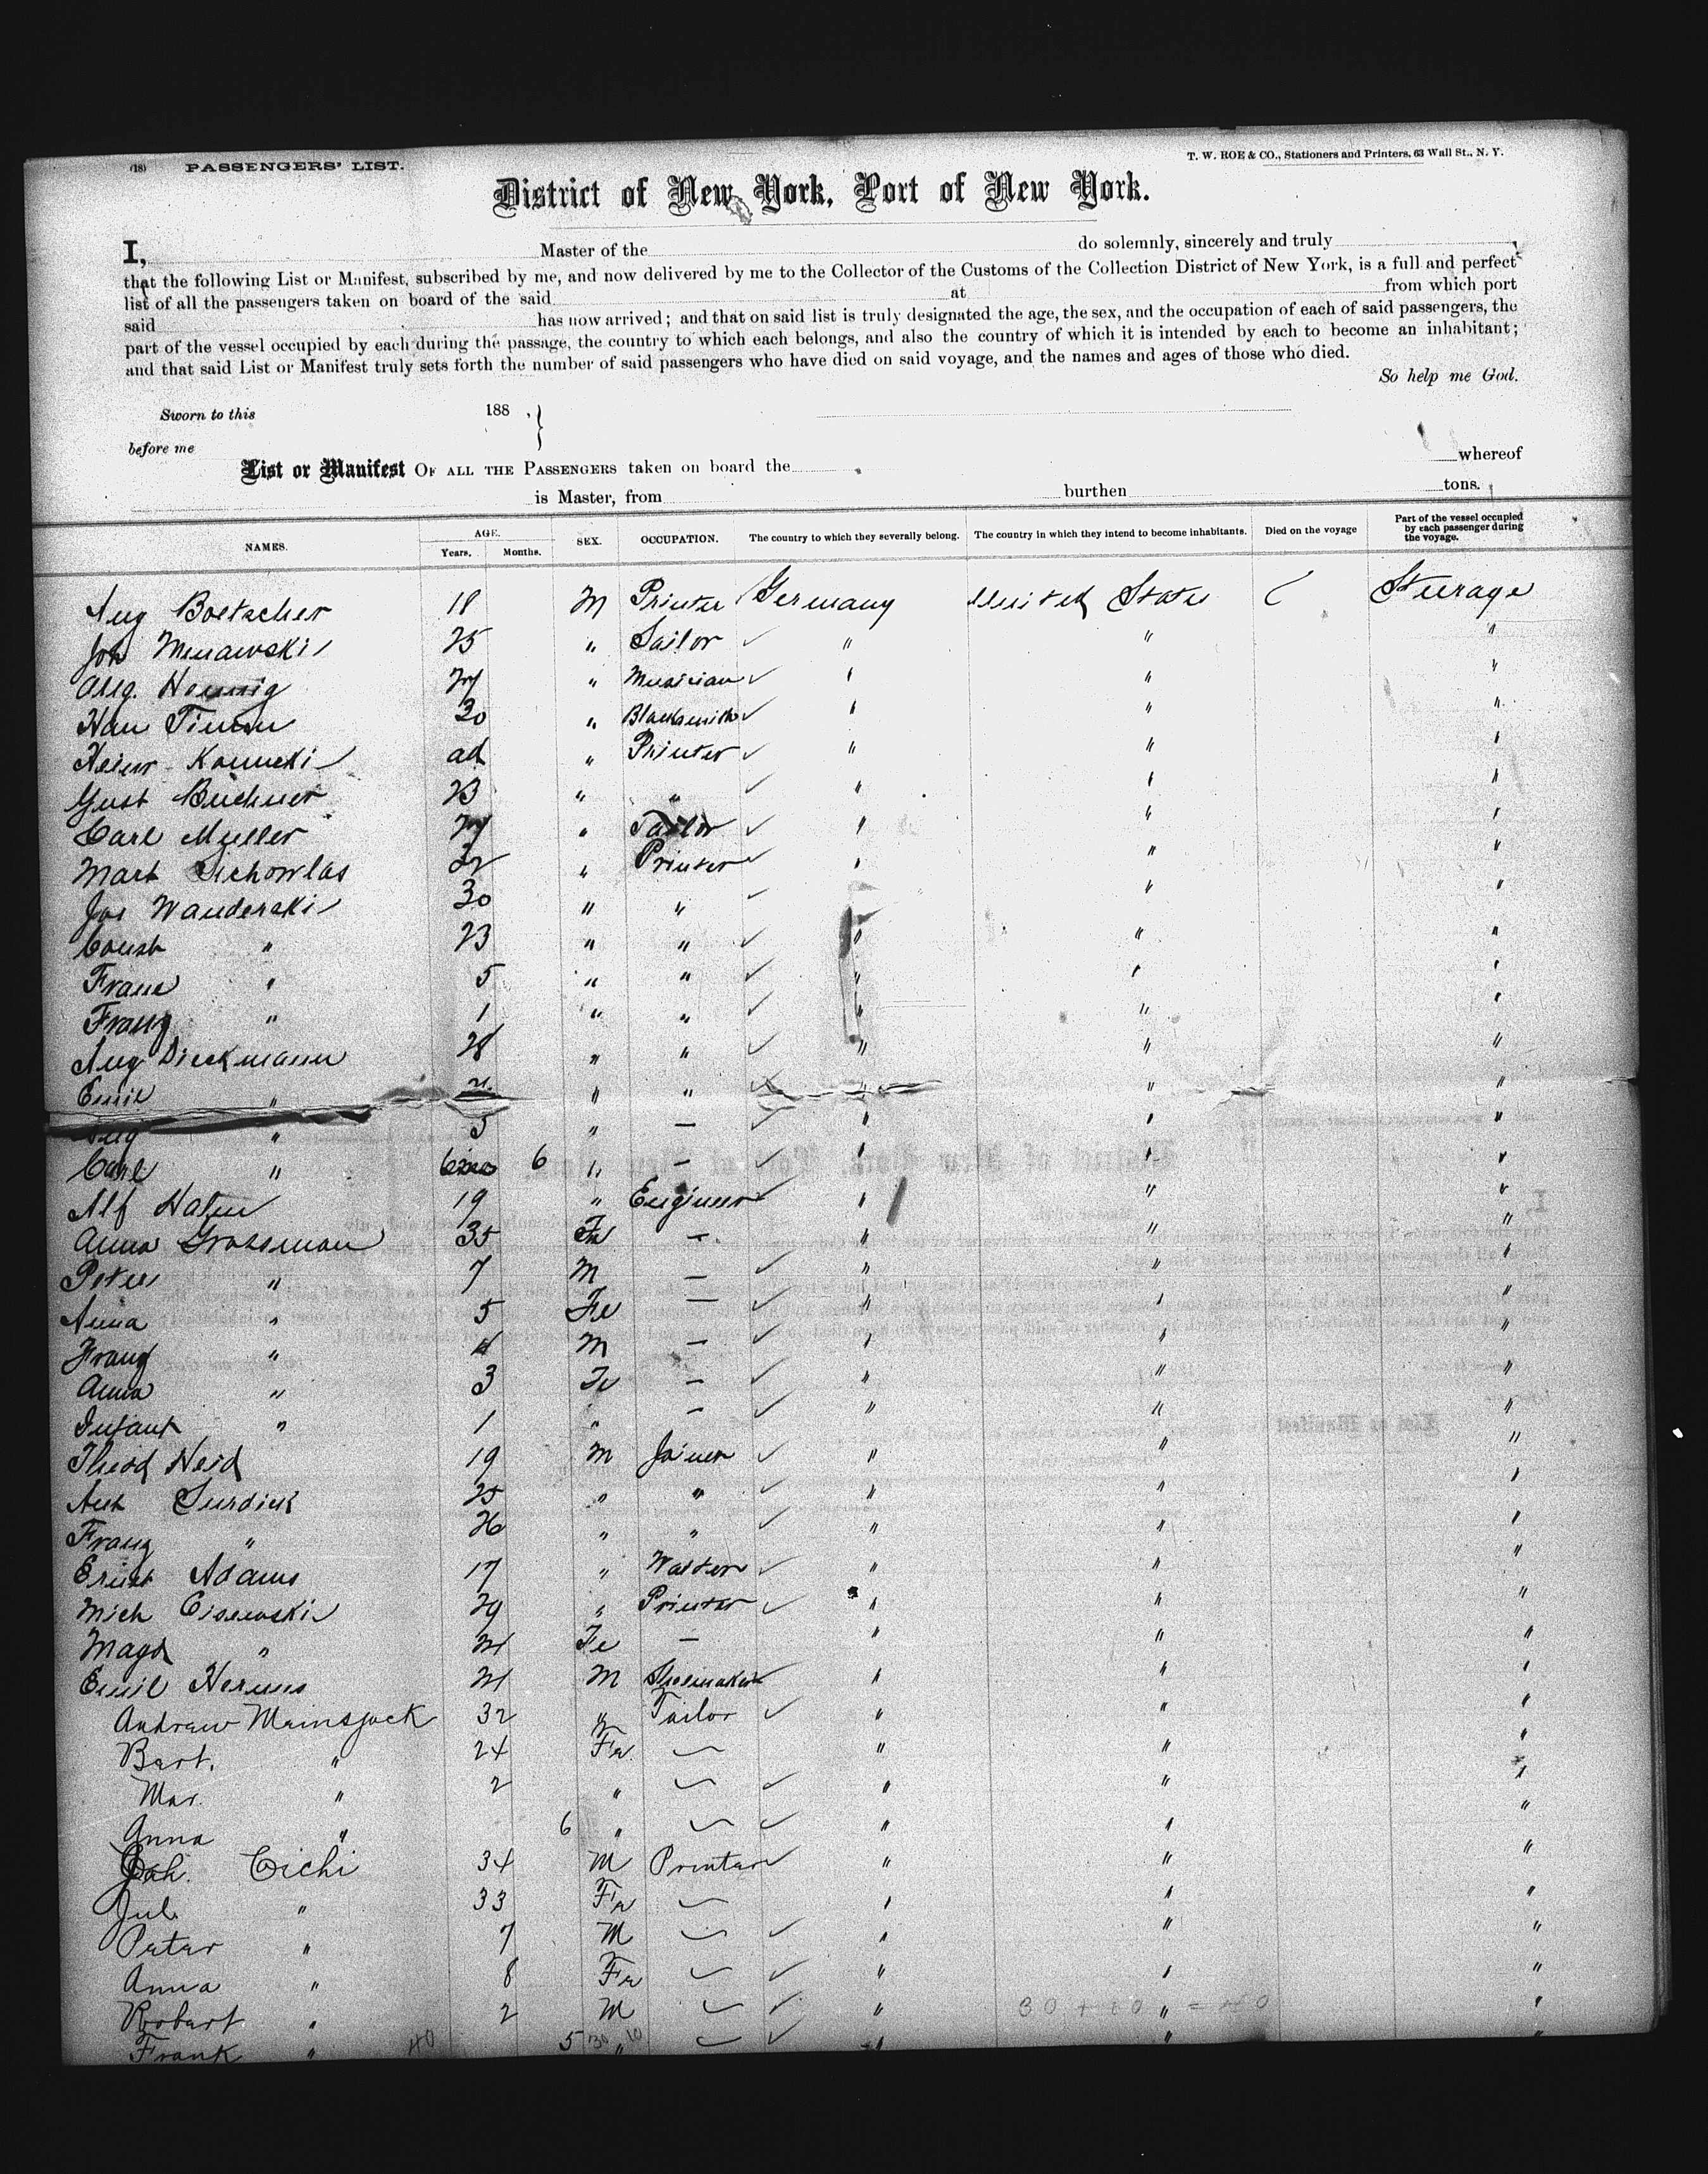 (18) PASSENGERS' LIST.
T. W. ROE & CO., Stationers and Printers, 63 Wall St., N. Y.
District of New York, Port of New York.
I, Master of the do solemnly, sincerely and truly ,
that the following List or Manifest, subscribed by me, and now delivered by me to the Collector of the Customs of the Collection District of New York, is a full and perfect
list of all the passengers taken on board of the said at from which port
said has now arrived; and that on said list is truly designated the age, the sex, and the occupation of each of said passengers, the
part of the vessel occupied by each during the passage, the country to which each belongs, and also the country of which it is intended by each to become an inhabitant;
and that said List or Manifest truly sets forth the number of said passengers who have died on said voyage, and the names and ages of those who died.
So help me God.
Sworn to this 188 , }
before me
List or Manifest OF ALL THE PASSENGERS taken on board the whereof
is Master, from burthen tons.
NAMES. AGE. Years. Months. SEX. OCCUPATION. The country to which they severally belong. The country in which they intend to become inhabitants. Died on the voyage Part of the vessel occupied by each passenger during the voyage.
Aug Boetscher 18 M Printer Germany United States Steerage
Joh 25 " Sailor " " "
Aug. Hennig " Musician " " "
30 " Blacksmith " " "
ad " Printer " " "
Gust Buchner 23 " " " " "
Carl Muller " Tailor " " "
Mart 32 " Printer " " "
Jos Wanderski 30 " " " " "
" 23 " " " " "
" 5 " " " " "
Franz " 1 " " " " "
Aug Dieckmann 28 " " " " "
Emil " " " " " "
Aug " 5 " — " " "
Carl " 6 " — " " "
Alf 19 " Engineer " " "
Anna Grossman 35 Fe — " " "
Peter " 7 M — " " "
Anna " 5 Fe — " " "
Franz " 4 M — " " "
Anna " 3 Fe — " " "
Infant " 1 " — " " "
Theod Heid 19 M Joiner " " "
Surdick 25 " " " " "
Franz " 26 " " " " "
Ernst Adams 17 " Waiter " " "
Mich Cisewski 29 " Printer " " "
Magd " Fe — " " "
Emil Hermes M Shoemaker " " "
Andrew Mainsjack 32 " Tailor " " "
Bart. " 24 Fe — " " "
Mar. " 2 " — " " "
Anna " 6 " — " " "
Joh. Cichi 34 M Printer " " "
Jul. " 33 Fe — " " "
Peter " 7 M — " " "
Anna " 8 Fe — " " "
Robert " 2 M — " 30 + 10 = 40 " "
Frank " 40 5 30 " 10 — " " "